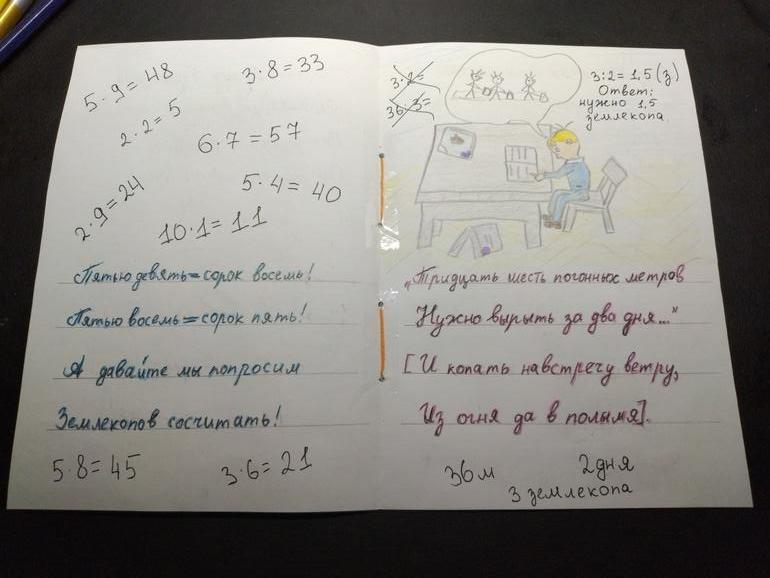 5·9=48
3·8=33
2·2=5
6·7=57
2·9=24
5·4=40
10·1=11
Пятью девять=сорок восемь!
Пятью восемь=сорок пять!
А давайте мы попросим
Землекопов сосчитать!
5·8=45
3·6=21
3·2=
36·3=
3:2=1,5(з)
Ответ:
нужно 1,5
землекопа
„Тридцать шесть погонных метров
Нужно вырыть за два дня..."
[И копать навстречу ветру,
Из огня да в полымя].
36м
2дня
3 землекопа